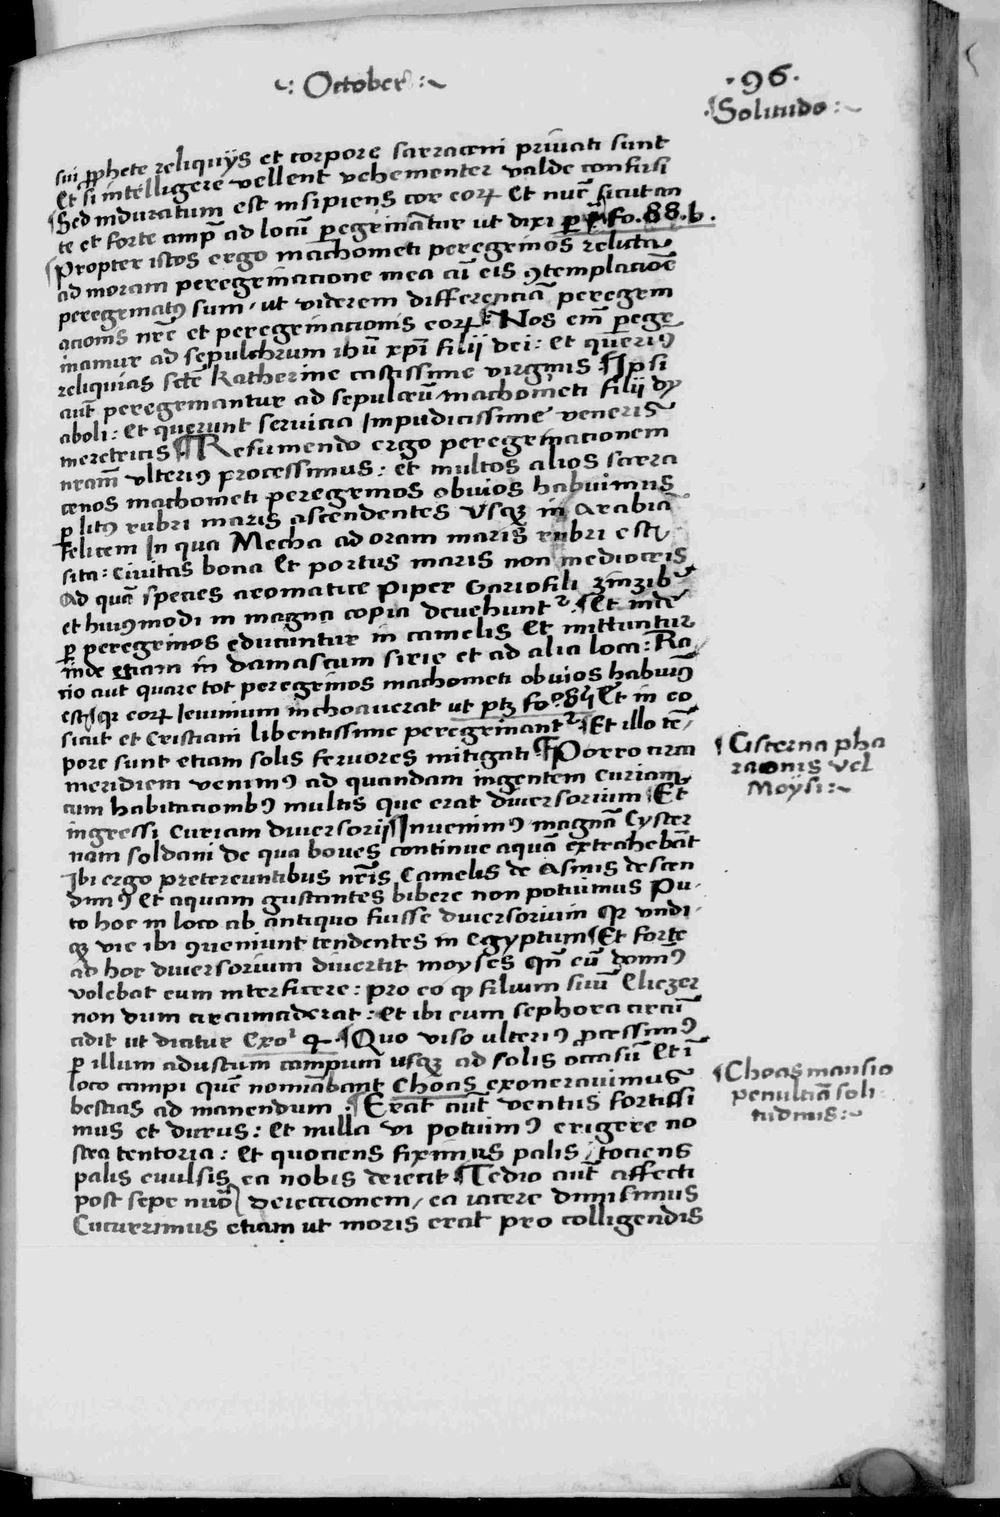 ~: October :~
·96·
·¶Solitudo :~
sui ꝓphete reliquijs et corpore sarraceni privati sunt
Et si intelligere vellent vehementer valde confusi
¶Sed induratum est insipiens cor eoꝝ Et nūc sicut an
te et forte ampl̄ ad locū peregrinātur ut dixi fo. 88. b.
¶Propter istos ergo machometi peregrinos relicta
ad moram peregrinacione mea cū eis ꝯtemplacione
peregrinatꝰ sum, ut viderem differenciā peregrin
acionis nr̄e et peregrinacionis eoꝝ ¶Nos em̄ peregr
inamur ad sepulchrum ihū xp̄i filij dei: et querimꝰ
reliquias scte Katherine castissime virginis ¶Ipsi
aut̄ peregrinantur ad sepulcrū machometi filij dy
aboli: et querunt servicia impudicissime veneris
meretricis ¶¶Resumendo ergo peregrinacionem
nram̄ ulteriꝰ processimus: et multos alios sarra
cenos machometi peregrinos obvios habuimus
ꝑ litꝰ rubri maris ascendentes usqꝫ in Arabiā
felicem In qua Mecha ad oram maris rubri est
sita: civitas bona et portus maris non mediocris
Ad quā species aromatice Piper Gariofili zinzibꝰ
et huiꝰmodi in magna copia devehuntr. ¶Et inde
ꝑ peregrinos educuntur in camelis Et mittuntur
inde etiam in damascum sirie et ad alia loca: Ra
cio aut̄ quare tot peregrinos machometi obvios habuimꝰ
est: qꝛ eoꝝ Ieiunium inchoaverat ut ptꝫ fo. Et in eo
sicut et Cristiani libentissime peregrinantr. ¶Et illo tē
pore sunt etiam solis fervores mitigati ¶Porro circa
meridiem venimꝰ ad quandam ingentem curiam
cum habitacionibꝰ multis que erat diversorium ¶Et
ingressi curiam diversorij ¶Invenimꝰ magnā Cyster
nam soldani de qua boves continue aquā extrahebāt
Ibi ergo pretereuntibus nr̄is Camelis de Asinis descen
dimꝰ Et aquam gustantes bibere non potuimus Pu
to hoc in loco ab antiquo fuisse diversorium qꝛ undi
qꝫ vie ibi ꝯveniunt tendentes in Egyptum ¶Et forte
ad hoc diversorium divertit moyses qn̄ eū domiꝰ
volebat eum interficere: pro eo qꝙ filium suū Eliezer
non dum circumciderat: et ibi eum sephora circū
cidit ut dicitur Exoi 4. ¶Quo viso ulteriꝰ ꝓcessimꝰ
ꝑ illum adustum campum usqꝫ ad solis occasū Et ī
loco campi quē nominabant Choas exoneravimus
bestias ad manendum. ¶Erat aut̄ ventus fortissi
mus et durus: Et nulla vi potuimꝰ erigere no
stra tentoria: et quociens fiximus palis, tociens
palis evulsis ea nobis deiecit ¶Tedio aut̄ affecti
post sepe nr̄o deiectionem, ea iacere dimisimus
Cucurrimus etiam ut moris erat pro colligendis
¶Cisterna pha
raonis vel
Moysi:~
¶Choas mansio
penultiā soli
tudinis:~